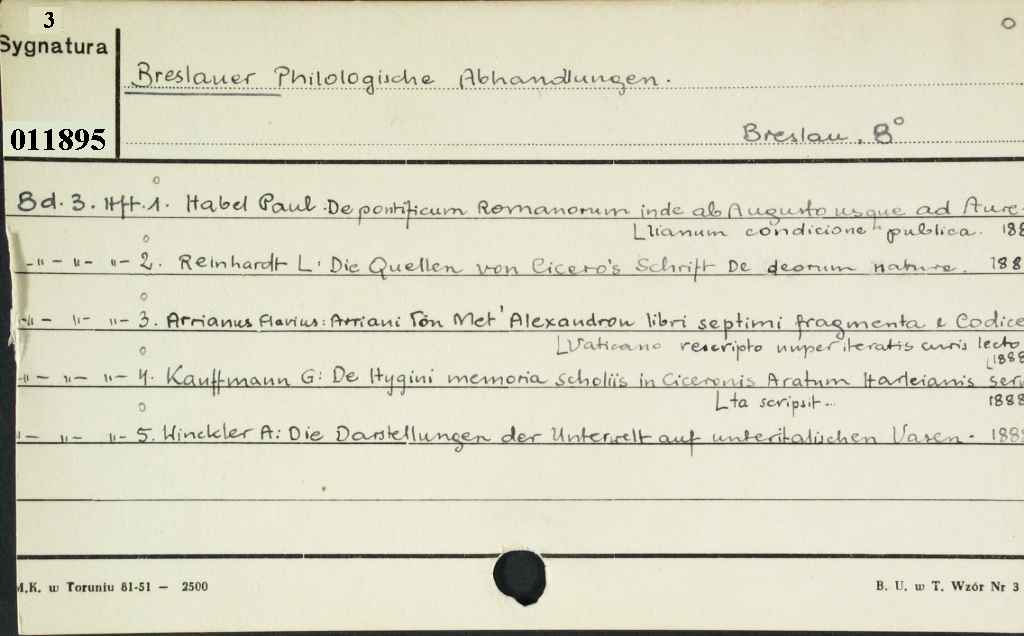 3
Sygnatura
Breslauer Philologische Abhandlungen.
011895
Breslau. 8°
Bd. 3. Hft. 1. Habel Paul. De pontificum Romanorum inde ab Augusto usque ad Aure
lianum condicione publica. 188
-"- "- "- 2. Reinhardt L. Die Quellen von Cicero's Schrift De deorum nature. 188
-"- "- "- 3. Arrianus Flavius: Arriani Tôn Met' Alexandron libri septimi fragmenta e Codice
Vaticano rescripto nuper iteratis curis lecto
1888
-"- "- "- 4. Kauffmann G: De Hygini memoria scholiis in Ciceronis Aratum Harleianis serv
ta scripsit. 1888
"- "- "- 5. Winckler A: Die Darstellungen der Unterwelt auf unteritalischen Vasen. 188
M.K. w Toruniu 81-51 — 2500
B. U. w T. Wzór Nr 3